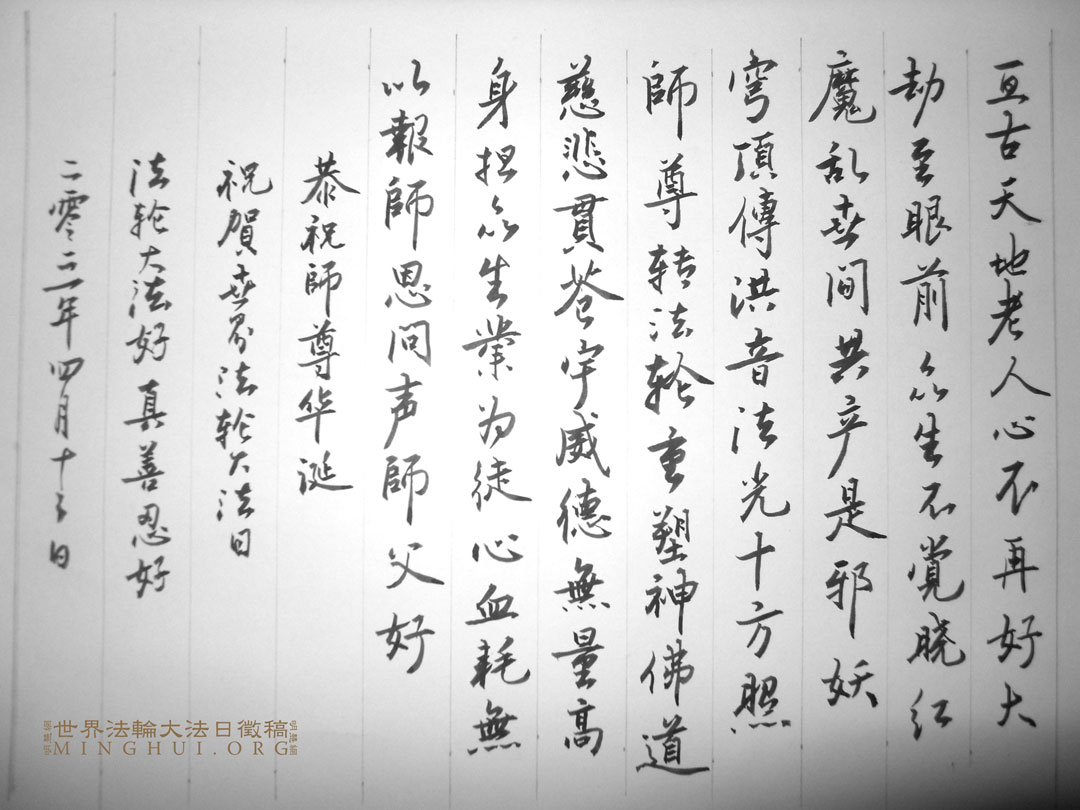 亘古天地老人心不再好大
劫至眼前众生不觉晓红
魔乱世间共产是邪妖
穹頂傳洪音法光十方照
師尊转法轮重塑神佛道
慈悲貫苍宇威德無量高
身担众生業为徒心血耗無
以報師恩问声師父好
恭祝師尊华诞
祝賀世界法轮大法日
法轮大法好 真善忍好
二零二二年四月十三日
世界法輪大法日徵稿
MINGHUI.ORG